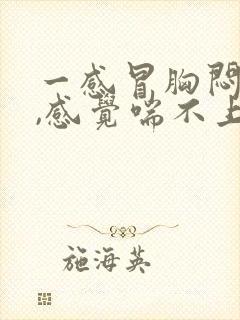 一感冒胸悶
,感覺喘不上
施海英